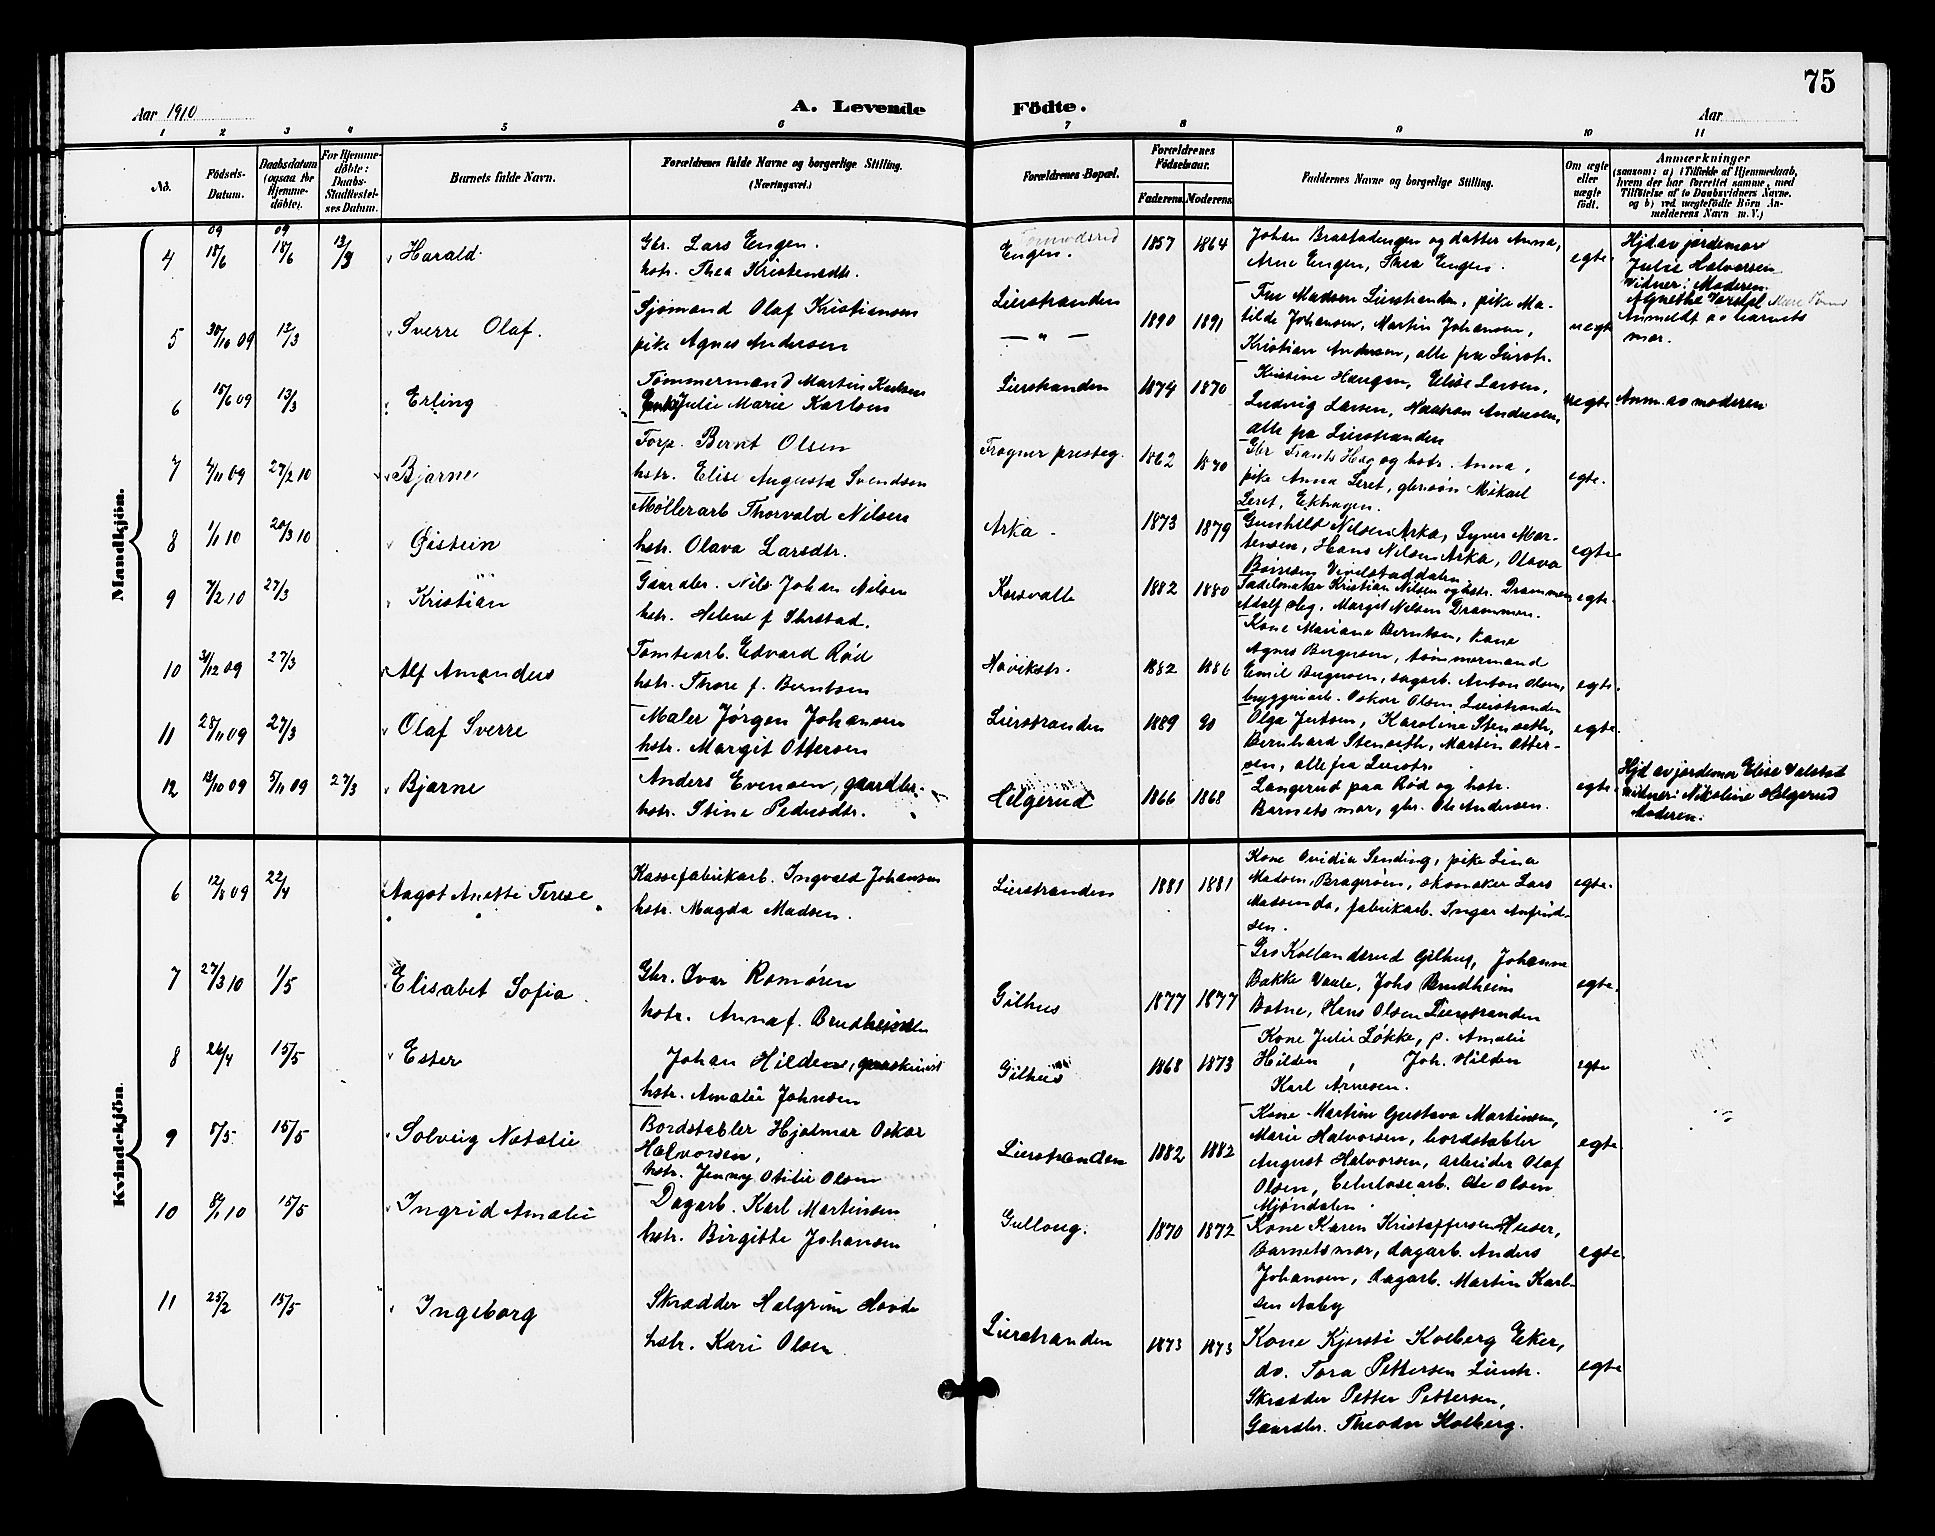 75
Aar 1910
A. Levende
Födte.
Aar
1 2 3 4 5 6 7 8 9 10 11
No.
Födsels-
Datum.
Daabsdatum
(ogsaa for
Hjemme-
döbte).
For Hjemme-
döbte:
Daabs-
Stadfæstel-
ses Datum.
Barnets fulde Navn.
Forældrenes fulde Navne og borgerlige Stilling.
(Næringsvei.)
Forældrenes Bopæl.
Forældrenes
Födselsaar.
Faderens Moderens
Faddernes Navne og borgerlige Stilling.
Om ægte
eller
uægte
födt.
Anmærkninger
(saasom: a) i Tilfælde af Hjemmedaab,
hvem der har forrettet samme, med
Tilföielse af to Daabsvidners Navne.
og b) ved uægtefödte Börn An-
melderens Navn m. V.)
Mandkjön.
4 18/6 09 18/6 09 13/3 Harald.
Gbr. Lars Engen.
hstr. Thea Kristensdtr.
Engen. 1857 1864
Johan Brastadengen og datter Anna,
Arne Engen, Thea Engen.
egte.
Hjd av jordemor
Julie Halvorsen
Vidner: Moderen.
Agnethe
5 30/10 09 12/3 Sverre Olaf.
Sjømand Olaf Kristiansen
pike Agnes Andersen
Lierstranden
— " —
1890 1891
Fru Madsen Lierstranden, pike Ma-
tilde Johansen, Martin Johansen,
Kristian Andersen, alle fra Lierstr.
uegte
Anmeldt av barnets
mor.
6 15/6 09 13/3 Erling
Tømmermand Martin Karlsen
Enke Julie Marie Karlsen
Lierstranden 1874 1870
Kristine Haugen, Elise Larsen,
Ludvig Larsen, Andersen,
alle fra Lierstranden
uegte Anm. av moderen
7 4/11 09 27/2 10 Bjarne
Torp. Bernt Olsen
hstr. Elise Augusta Svendsen
Frogner presteg. 1862 1870
Gbr Frants Hæg og hstr. Anna,
pike Anna Leret, gbrsøn Mikael
Leret, Ekhagen.
egte.
8 1/1 10 20/3 10 Øistein
Møllerarb Thorvald Nilsen
hstr. Olava Larsdtr.
Arka - 1873 1879
Gunhild Nilsen Arka, Syver Mor-
tensen, Hans Nilsen Arka, Olava
Børresen Vivelstaddalen.
egte
9 7/2 10 27/3 Kristian
Gaardbr. Nils Johan Nilsen
hstr. Helene f. Ihrstad.
Korsvalle 1882 1880
Sadelmaker Kristian Nilsen og hstr. Drammen
Adolf Heg, Margit Nilsen Drammen.
egte.
10 31/12 09 27/3 Alf Amandus
Tomtearb. Edvard Rød
hstr. Thore f. Berntsen
Høvikstr. 1882 1886
Kone Mariane Berntsen, kone
Agnes Bergersen, tømmermand
Emil Bergersen, sagarb. Anton Olsen,
bryggeriarb. Oskar Olsen, Lierstranden
egte.
11 28/11 09 27/3 Olaf Sverre
Maler Jørgen Johansen
hstr. Margit Ottersen
Lierstranden 1889 90
Olga Jensen, Karoline Stenseth,
Bernhard Stenseth, Martin Otter-
sen, alle fra Lierstr.
egte.
12 13/10 09 5/11 09 27/3 Bjarne
Anders Evensen, gaardbr.
hstr. Stine Pedersdtr.
Hilgerud 1866 1868
Langerud paa Rød og hstr.
Barnets mor, gbr. Ole Andersen.
egte.
Hjd av jordemor Elise Valstad
Vidner: Nikoline Helgerud
Moderen.
Kvindekjön.
6 12/8 09 22/4 Aagot Anette Terese
Kassefabrikarb. Ingvald Johansen
hstr. Magda Madsen.
Lierstranden 1881 1881
Kone Ovidia Sending, pike Lina
Madsen, Bragerøen, skomaker Lars
Madsen do, fabrikarb. Ingar Anfind-
sen.
egte.
7 27/3 10 1/5 Elisabet Sofia.
Gbr. Ivar Romøren
hstr. Anna f. Brudheim
Gilhus 1877 1877
Gro Kollandsrud Gilhus, Johanne
Bakke Vaale, Johs Brudheim
Botne, Hans Olsen Lierstranden
egte.
8 26/4 15/5 Ester
Johan Hilden, maskinist
hstr. Amalie Johnsen
Gilhus 1868 1873
Kone Julie Løkke, p. Amalie
Hilden, Joh. Hilden
Karl Arnesen.
egte
9 8/5. 15/5 Solveig Natalie
Bordstabler Hjalmar Oskar
Halvorsen,
hstr. Jenny Otilie Olsen
Lierstranden 1882 1882
Kone Martine Gustava Martinsen,
Marie Halvorsen, bordstabler
August Halvorsen, arbeider Olaf
Olsen, Celulosearb. Ole Olsen
Mjøndalen.
egte
10 8/1 10 15/5 Ingrid Amalie
Dagarb. Karl Martinsen
hstr. Birgitte Johansen
Gulloug. 1870 1872
Kone Karen Kristoffersen Huser,
Barnets mor, dagarb. Anders
Johansen, dagarb. Martin Karl-
sen Aaby
egte.
11 25/2 15/5 Ingeborg
Skrædder Halgrim Hovde
hstr. Kari Olsen.
Lierstranden 1873 1873
Kone Kjersti Kolberg Eker,
do. Tora Pettersen Lierstr.
Skrædder Petter Pettersen,
Gaardbr. Theodor Kolberg.
egte